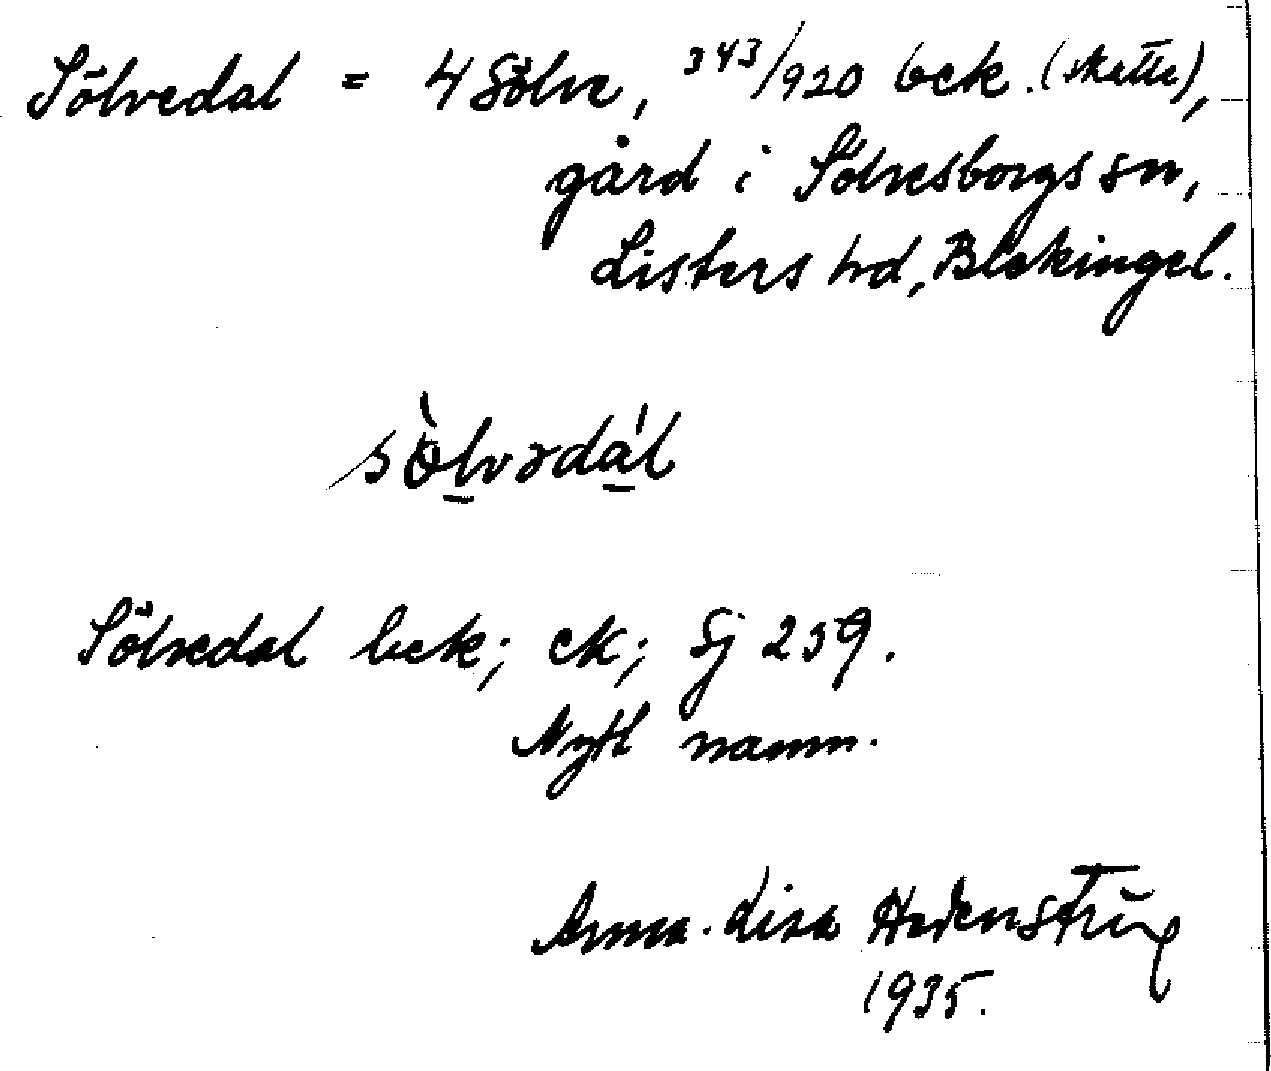 Sölvedal = 4 Sölve, 343/920 bek. (skatte),
gård i Sölvesborgs sn,
Listers hd, Blekinge l.
sö̀lvədál
Sölvedal bek; ek; Sj 259.
Nytt namn.
Anna-Lisa Hedenstrüg
1935.